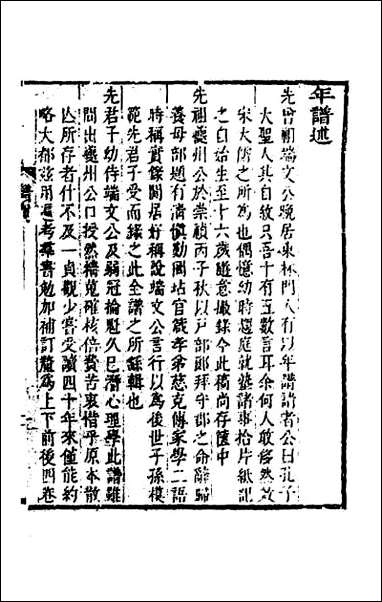 年譜述
先曾祖端文公晚居東林門人有以年譜請者公曰孔子
大聖人其自敘只吾十有五數言耳余何人敢侈然效
宋大儒之所為也偶憶幼時還就塾諸事拾片紙記
之自始生至十六歲隨意撮錄今此稿尚存篋中
先祖夔州公於崇禎丙子秋以戶部郎拜守郡之命辭歸
養母部題有清慎勤閩站官箴孝弟慈克傳家學二語
時稱實錄閒居好稱說端文公言行以為後世子孫模
範先君子受而錄之此全譜之所繇輯也
先君子幼侍端文公及弱冠掄魁久已潛心理學此譜雖
間出夔州公口授然稽蒐確核倍費苦衷惜乎原本散
亾所存者什不及一貞觀少嘗受讀四十年來僅能約
略大都茲用遍考羣書勉加補訂釐為上下前後四卷